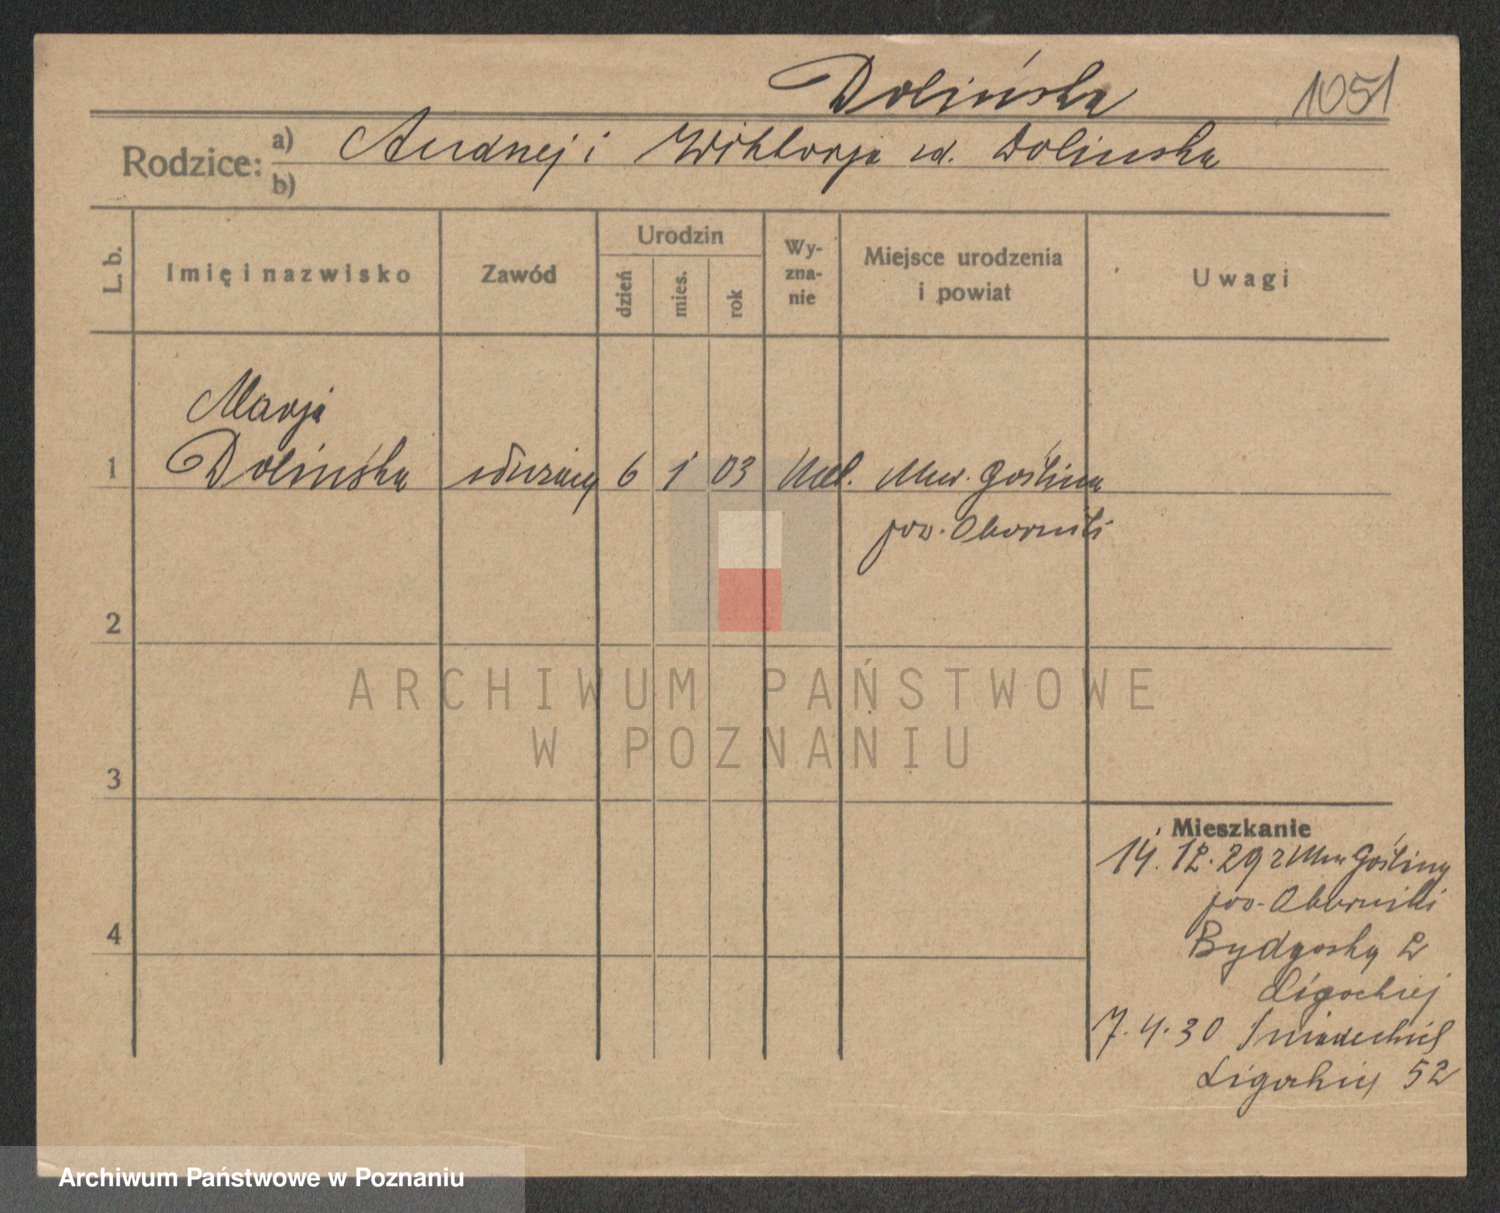 Dolińska 1051
Rodzice: a) Andrzej i Wiktorja zd. Dolinska
b)
L. b. Imię i nazwisko Zawód Urodzin dzień mies. rok Wyznanie Miejsce urodzenia i powiat Uwagi
Marja
1 Dolińska służący 6 1 03 kat. Mur. Goślina
pow. Oborniki
2
3
4
Mieszkanie
14. 12. 29 z Mur Gośliny
pow. Oborniki
Bydgoska 2
Ligockiej
7. 4. 30 Śniadeckich
Ligockiej 52
ARCHIWUM PAŃSTWOWE
W POZNANIU
Archiwum Państwowe w Poznaniu